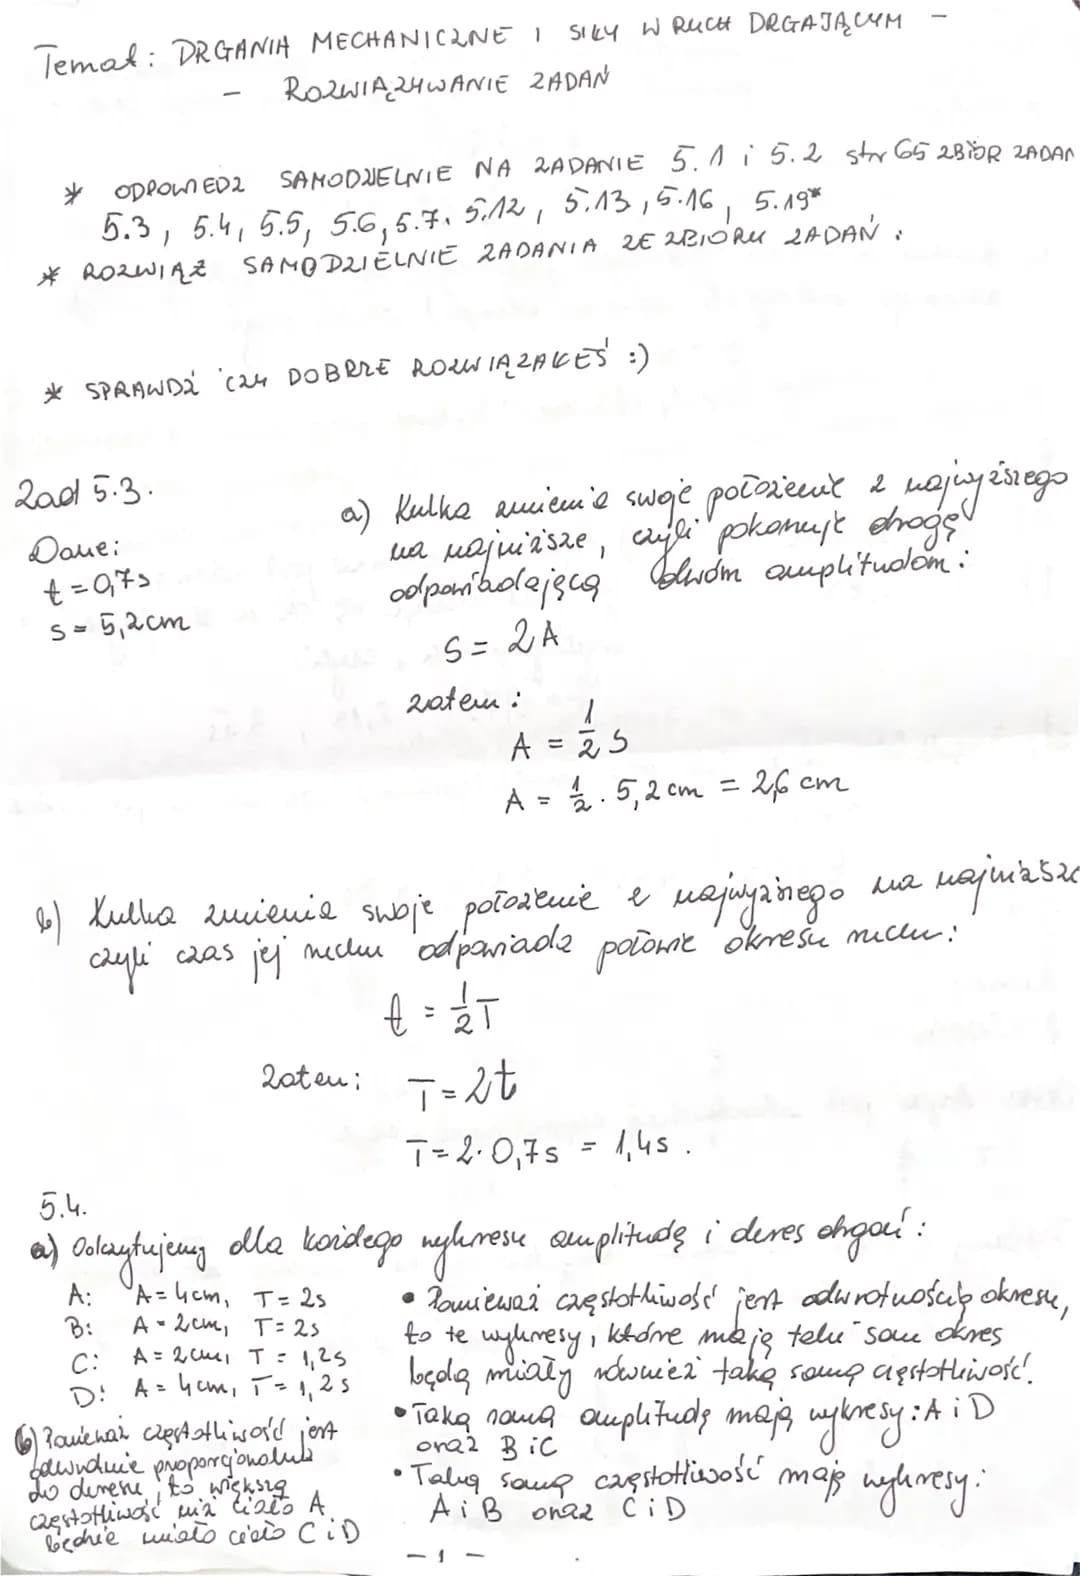 Temat: DRGANIA MECHANICZNE I SIŁY W RUCH DRGAJĄCYM -
- ROZWIĄZYWANIE ZADAŃ
* ODPOWIEDZ SAMODZIELNIE NA ZADANIE 5.1 i 5.2 str 65 ZBIÓR ZADAŃ
5.3, 5.4, 5.5, 5.6, 5.7, 5.12, 5.13, 5.16, 5.19*
* ROZWIĄŻ SAMODZIELNIE ZADANIA ZE ZBIORU ZADAŃ:
* SPRAWDŹ CZY DOBRZE ROZWIĄZAŁEŚ :)
Zad 5.3.
Dane:
t = 0,7s
s = 5,2cm
a) Kulka zmienia swoje położenie z najwyższego
na najniższe, czyli pokonuje drogę
odpowiadającą dwóm amplitudom:
S = 2A
zatem:
A = 1/2 S
A = 1/2 · 5,2cm = 2,6 cm
b) Kulka zmienia swoje położenie z najwyższego na najniższe
czyli czas jej ruchu odpowiada połowie okresu ruchu:
t = 1/2 T
Zatem: T = 2t
T = 2 · 0,7s = 1,4s.
5.4.
a) Odczytujemy dla każdego wykresu amplitudę i okres drgań:
A: A = 4cm, T = 2s
B: A = 2cm, T = 2s
C: A = 2cm, T = 1,2s
D: A = 4cm, T = 1,2s
• Ponieważ częstotliwość jest odwrotnością okresu,
to te wykresy, które mają taki sam okres
będą miały również taką samą częstotliwość.
• Taką samą amplitudę mają wykresy: A i D
oraz B i C
• Taką samą częstotliwość mają wykresy:
A i B oraz C i D
b) Ponieważ częstotliwość jest
odwrotnie proporcjonalna
do okresu, to większą
częstotliwość niż ciało A
będzie miało ciało C i D
- 1 -